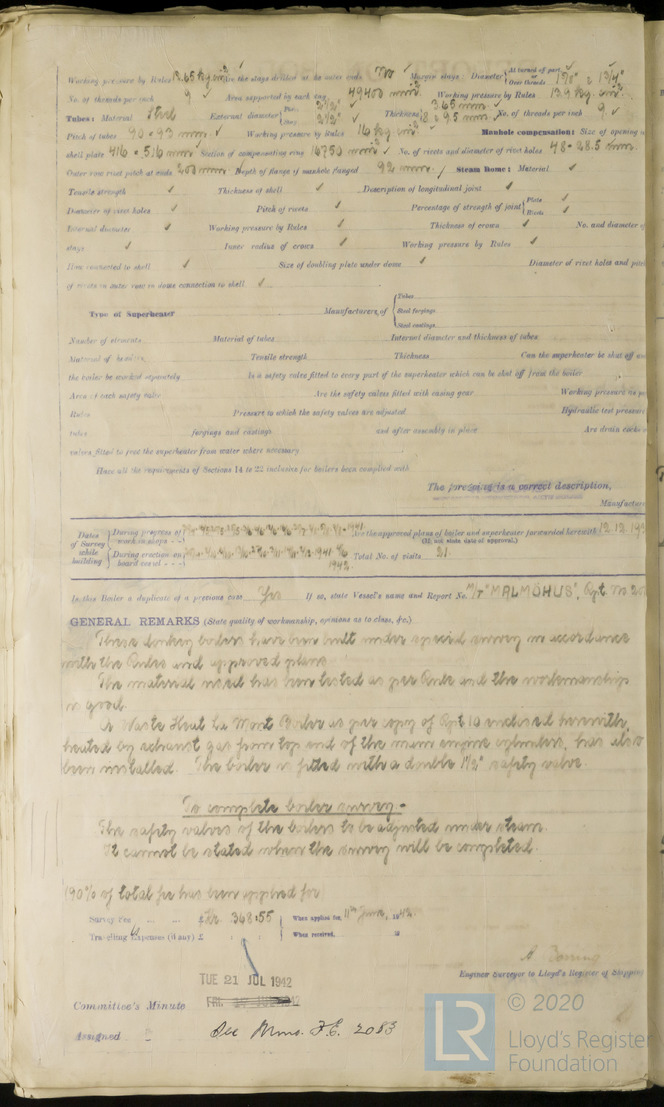 Working pressure by Rules 12.65 kg/cm² Are the stays drilled at the outer ends No Margin stays: Diameter At turned off part 1⅞" & 1¾" Over threads
No. of threads per inch 9 ✓ Area supported by each stay 49400 mm² Working pressure by Rules 13.9 kg/cm²
Tubes: Material Steel External diameter Plain 2½" Stay 2½" ✓ Thickness 3.65 mm 8 & 9.5 mm ✓ No. of threads per inch 9 ✓
Pitch of tubes 90 × 93 mm ✓ Working pressure by Rules 16 kg/cm² Manhole compensation: Size of opening
shell plate 416 × 516 mm ✓ Section of compensating ring 16750 mm² ✓ No. of rivets and diameter of rivet holes 48 - 28.5 mm
Outer row rivet pitch at ends 200 mm Depth of flange if manhole flanged 92 mm ✓ Steam Dome: Material ✓
Tensile strength ✓ Thickness of shell ✓ Description of longitudinal joint ✓
Diameter of rivet holes ✓ Pitch of rivets ✓ Percentage of strength of joint Plate ✓ Rivets ✓
Internal diameter ✓ Working pressure by Rules ✓ Thickness of crown ✓ No. and diameter of
stays ✓ Inner radius of crown ✓ Working pressure by Rules ✓
How connected to shell ✓ Size of doubling plate under dome ✓ Diameter of rivet holes and pitch
of rivets in outer row in dome connection to shell ✓
Type of Superheater Manufacturers of Tubes Steel forgings Steel castings
Number of elements Material of tubes Internal diameter and thickness of tubes
Material of headers Tensile strength Thickness Can the superheater be shut off and
the boiler be worked separately Is a safety valve fitted to every part of the superheater which can be shut off from the boiler
Area of each safety valve Are the safety valves fitted with easing gear Working pressure as per
Rules Pressure to which the safety valves are adjusted Hydraulic test pressure
tubes forgings and castings and after assembly in place Are drain cocks or
valves fitted to free the superheater from water where necessary
Have all the requirements of Sections 14 to 22 inclusive for boilers been complied with
The foregoing is a correct description,
Manufacturer
Dates of Survey while building During progress of work in shops - - 1941 Are the approved plans of boiler and superheater forwarded herewith 12.12.19
(If not state date of approval.)
During erection on board vessel - - - 1941 1942 Total No. of visits 21
Is this Boiler a duplicate of a previous case Yes If so, state Vessel's name and Report No. M/T "MALMÖHUS", Rpt. No 20
GENERAL REMARKS (State quality of workmanship, opinions as to class, &c.)
These donkey boilers have been built under special survey in accordance
with the Rules and approved plans.
The material used has been tested as per Rule and the workmanship
is good.
A Waste Heat La Mont Boiler as per copy of Rpt 10 enclosed herewith,
heated by exhaust gas from top end of the main engine cylinders, has also
been installed. The boiler is fitted with a double 1½" safety valve.
To complete boiler survey.-
The safety valves of the boilers to be adjusted under steam.
It cannot be stated when the survey will be completed.
(90% of total fee has been applied for)
Survey Fee ... ... £ Kr. 368:55 When applied for, 11th June, 1942
Travelling Expenses (if any) £ : : When received, 19
Engineer Surveyor to Lloyd's Register of Shipping
TUE 21 JUL 1942
Committee's Minute FRI.
Assigned See Mins. F.E. 2083
LR © 2020
Lloyd's Register
Foundation